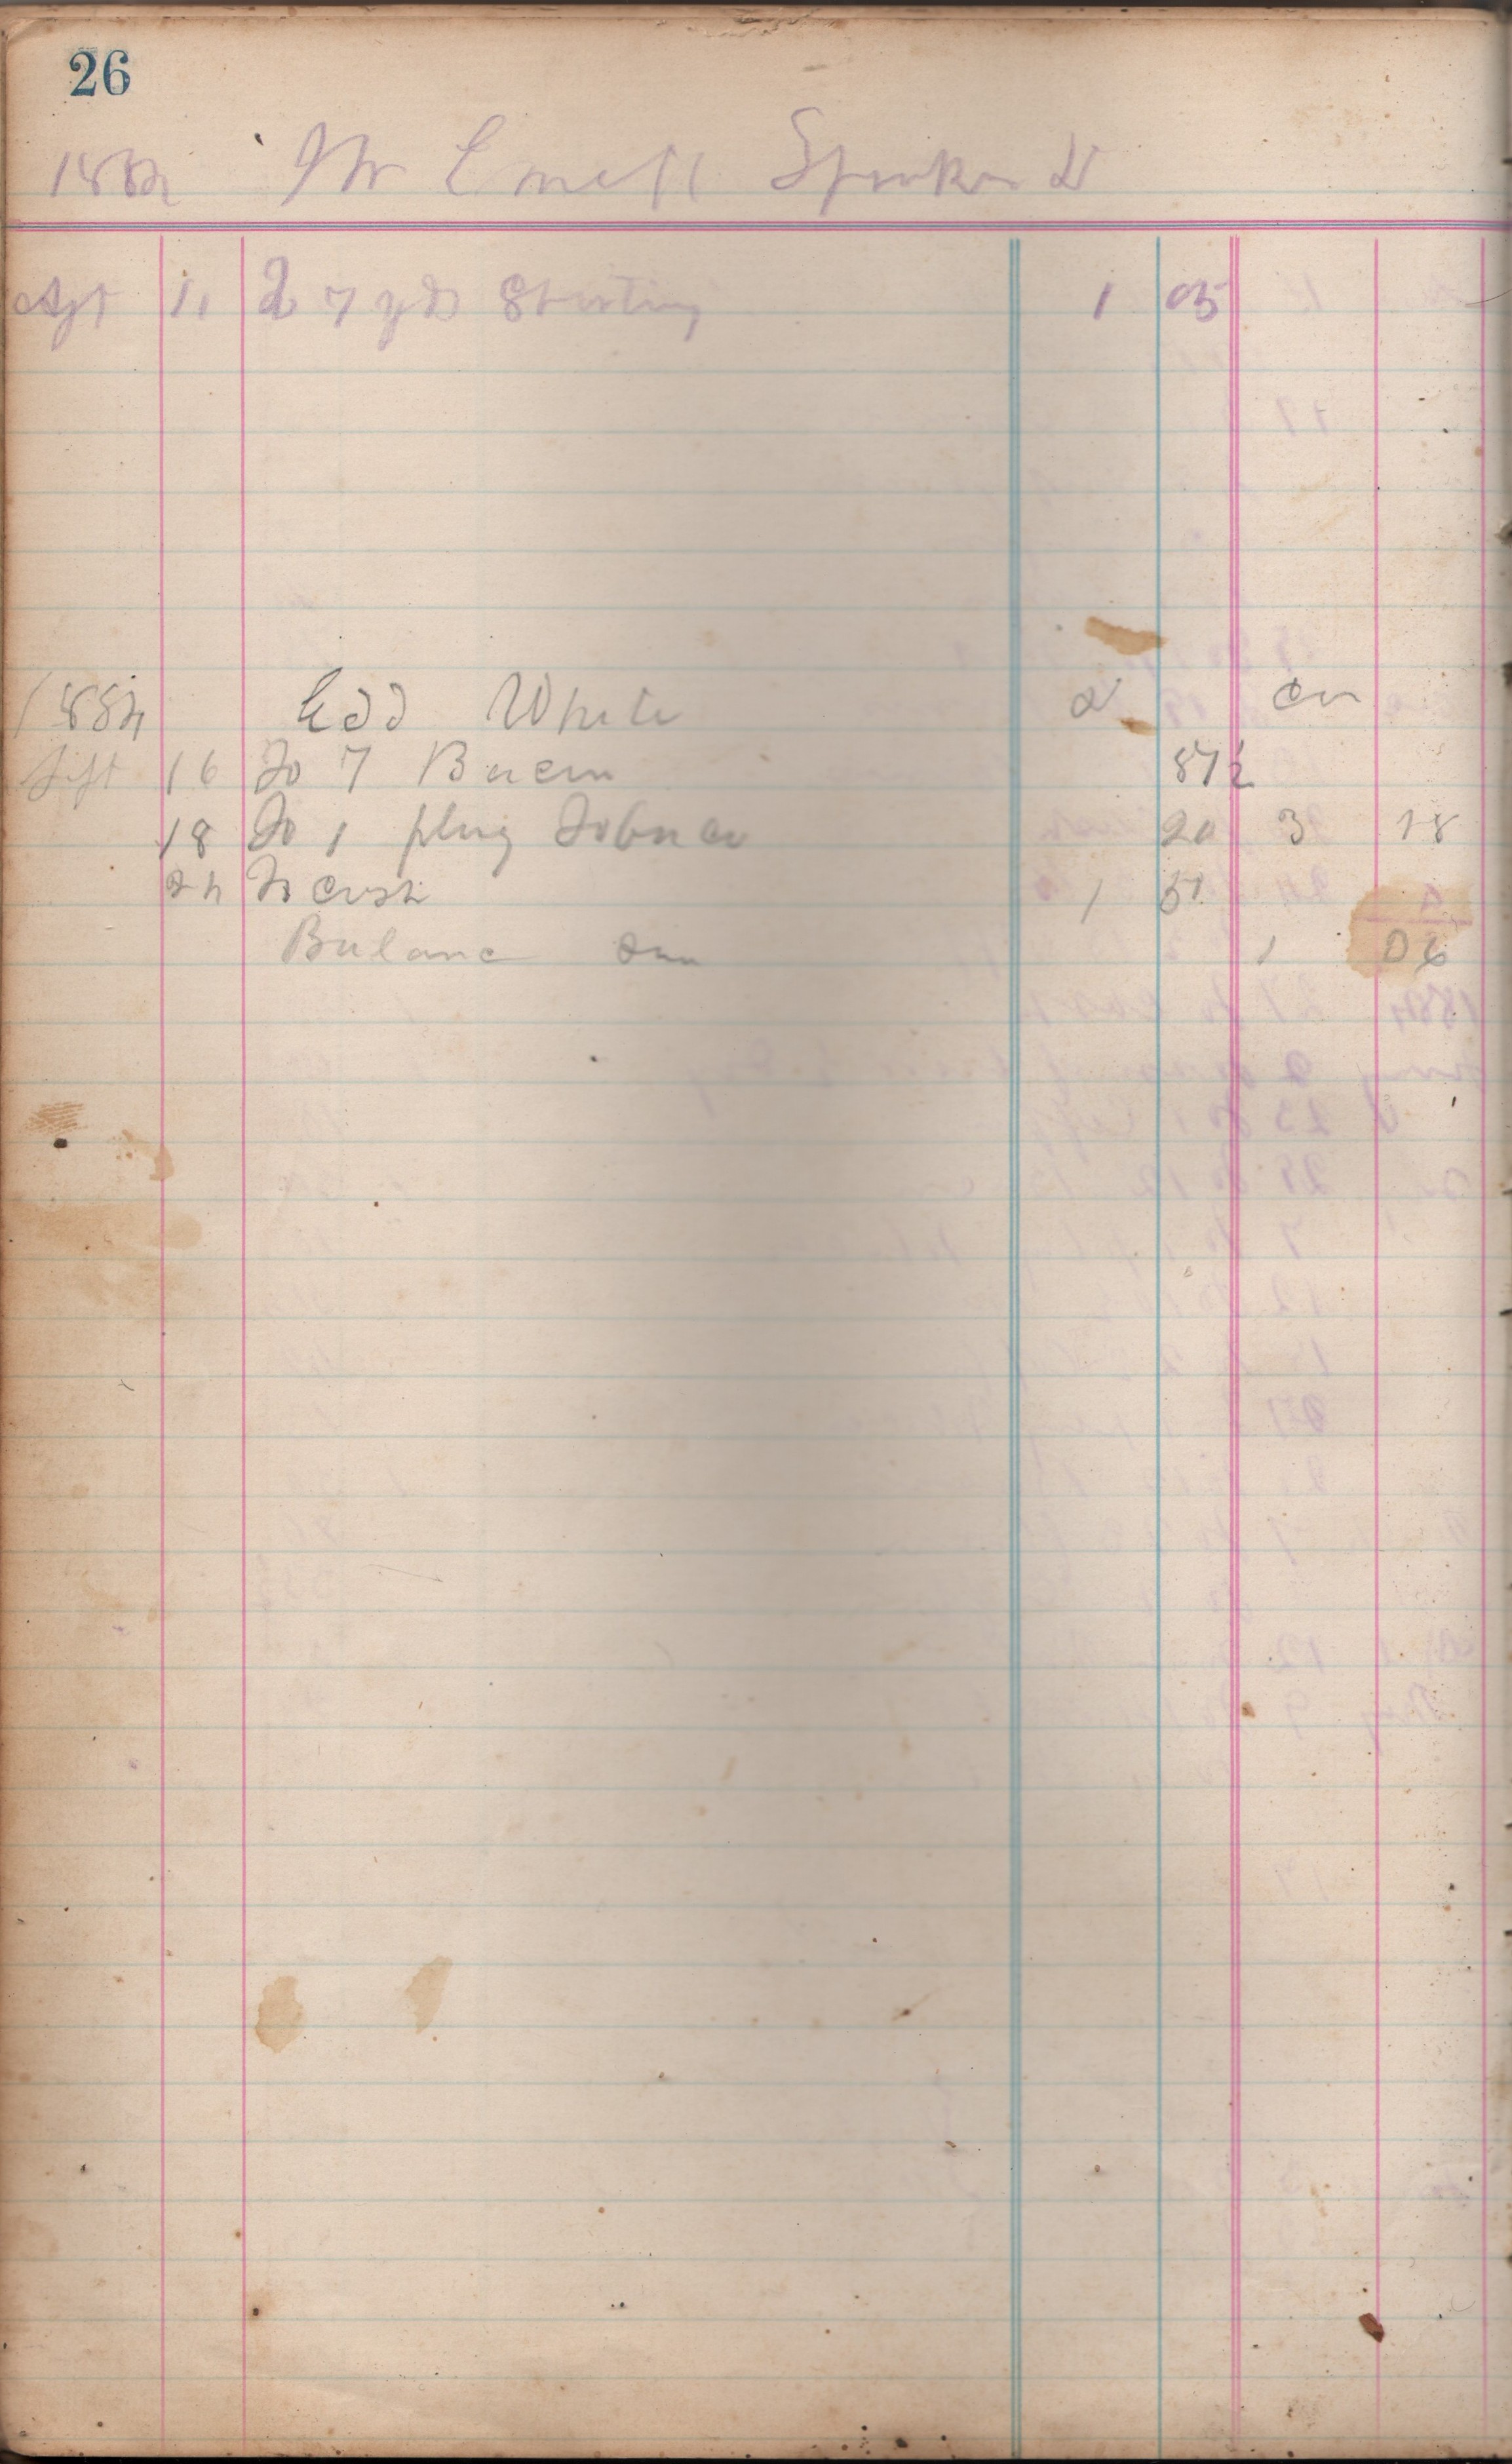 26
1884 Mr Spinks Dr
11 To 7 yds Shirting 1 05
1884 Edd White Dr Cr
Sept 16 To 7 Bacon 87½
18 To 1 plug Tobacco 20 3 18
24 To cash 1 5
Balanc due 1 06